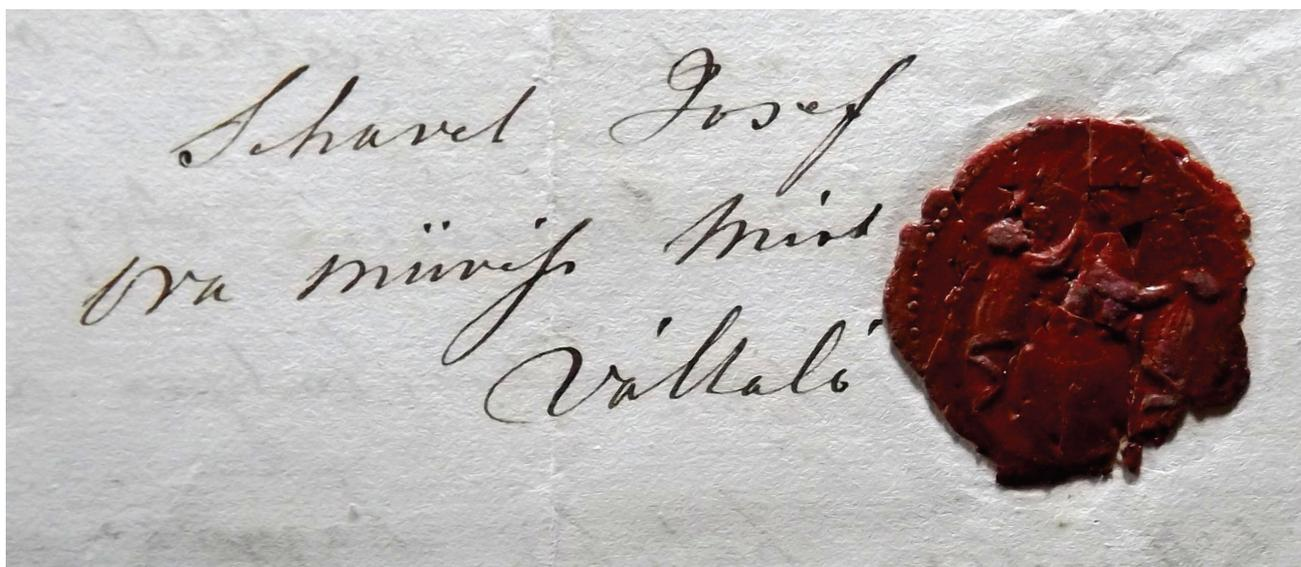 Schavel Josef
ora müvész mint
Váltaló